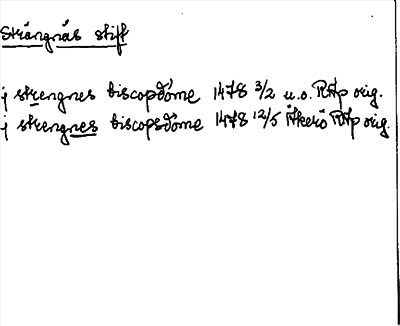 Strängnäs stift
j strengnes biscopsdöme 1478 3/2 u.o. RAp orig.
j strengnes biscopsdöme 1478 12/5 Åkerö RAp orig.